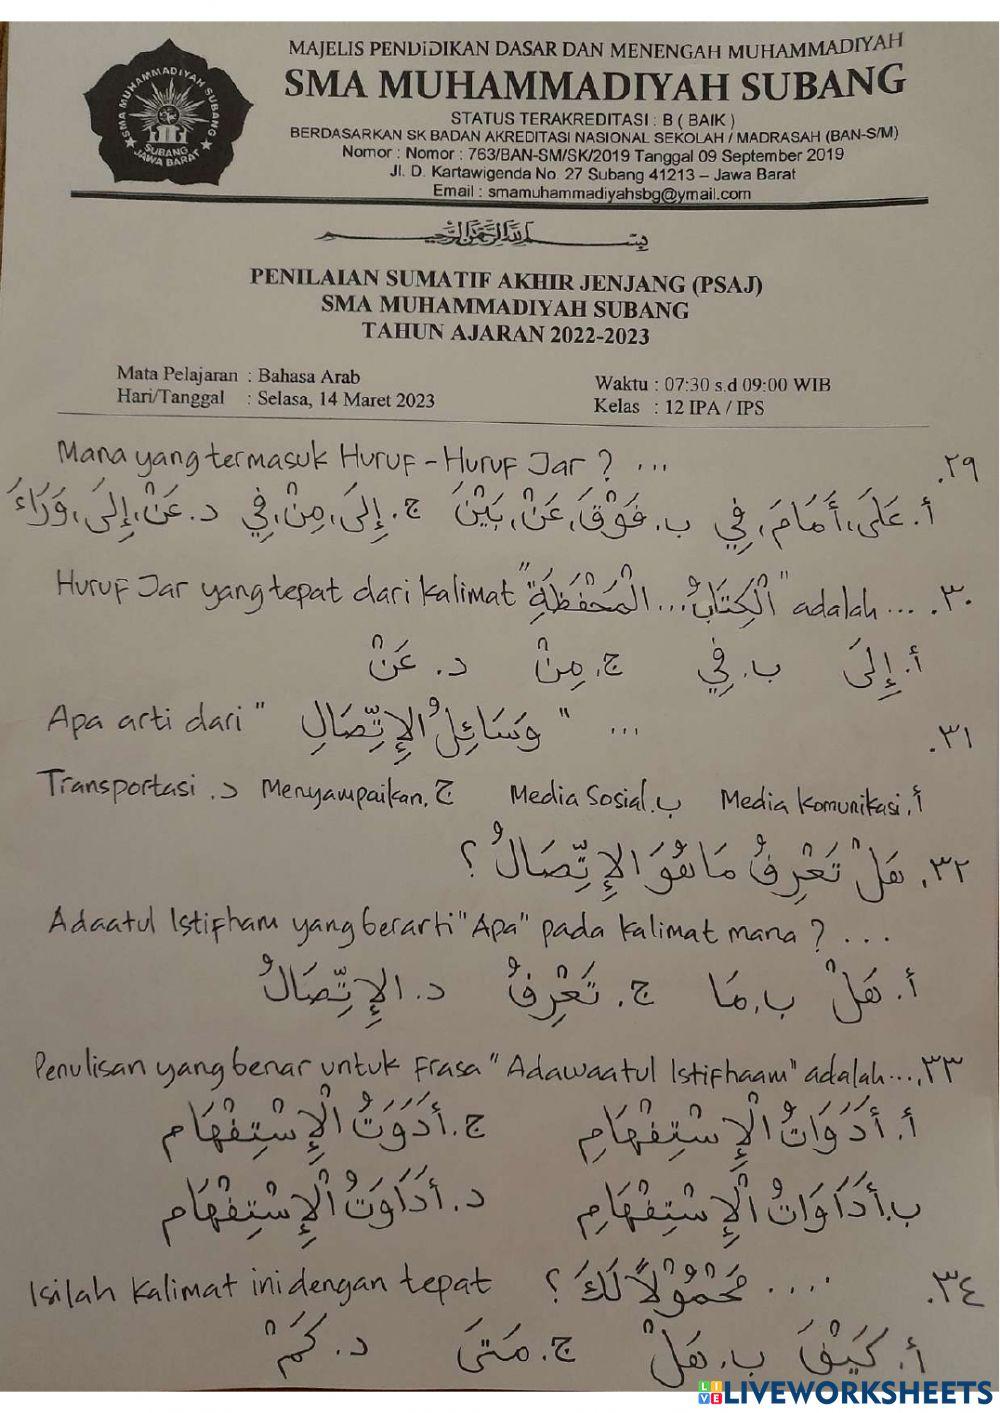 MAJELIS PENDIDIKAN DASAR DAN MENENGAH MUHAMMADIYAH
SMA MUHAMMADIYAH SUBANG
STATUS TERAKREDITASI : B ( BAIK )
BERDASARKAN SK BADAN AKREDITASI NASIONAL SEKOLAH / MADRASAH (BAN-S/M)
Nomor : Nomor : 763/BAN-SM/SK/2019 Tanggal 09 September 2019
Jl. D. Kartawigenda No. 27 Subang 41213 – Jawa Barat
Email : smamuhammadiyahsbg@ymail.com
SMA MUHAMMADIYAH SUBANG
SUBANG
JAWA BARAT
بسم الله الرحمن الرحيم
PENILAIAN SUMATIF AKHIR JENJANG (PSAJ)
SMA MUHAMMADIYAH SUBANG
TAHUN AJARAN 2022-2023
Mata Pelajaran : Bahasa Arab
Hari/Tanggal : Selasa, 14 Maret 2023
Waktu : 07:30 s.d 09:00 WIB
Kelas : 12 IPA / IPS
٢٩. Mana yang termasuk Huruf - Huruf Jar ? ...
أ. عَلَى، أَمَامَ، فِي ب. فَوْقَ، عَنْ، بَيْنَ ج. إِلَى، مِنْ، فِي د. عَنْ، إِلَى، وَرَاءَ
٣٠. Huruf Jar yang tepat dari kalimat "الْكِتَابُ ... الْمَحْفَظَةِ" adalah ....
أ. إِلَى ب. فِي ج. مِنْ د. عَنْ
٣١. Apa arti dari "وَسَائِلُ الإِتِّصَالِ" ...
أ. Media komunikasi ب. Media Sosial ج. Menyampaikan د. Transportasi
٣٢. هَلْ تَعْرِفُ مَا هُوَ الإِتِّصَالُ ؟
Adaatul Istifham yang berarti "Apa" pada kalimat mana ? ...
أ. هَلْ ب. مَا ج. تَعْرِفُ د. الإِتِّصَالُ
٣٣. Penulisan yang benar untuk frasa "Adawaatul Istifhaam" adalah ...
أ. أَدَوَاتُ الْإِسْتِفْهَامِ ج. أَدَوَتُ الْإِسْتِفْهَام
ب. أَدَاوَاتُ الْإِسْتِفْهَامِ د. أَدَاوَتُ الْإِسْتِفْهَام
٣٤. Isilah kalimat ini dengan tepat .... مَحْمُوْلاً لَكَ ؟
أ. كَيْفَ ب. هَلْ ج. مَتَى د. كَمْ
LIVE LIVEWORKSHEETS